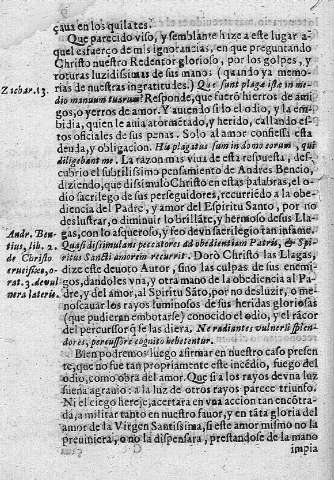 çaua en los quilates.
Que parecido viso, y semblante hize a este lugar a-
quel esfuerço de mis ignorancias, en que preguntando
Christo nuestro Redentor glorioso, por los golpes, y
roturas luzidissimas de sus mano: (quando ya memo-
rias de nuestras ingratitudes.) Que sunt plagæ istæ in me-
Zachar. 13.
dio manuum tuarum? Responde, que fueron hierros de ami-
gos, o yerros de amor. Y auiendo sido el odio, y la em-
bidia, quien le auia atormentado, y herido, callando es-
tos oficiales de sus penas. Solo al amor confiessa esta
deuda, y obligacion. His plagatus sum in domo eorum, qui
diligebant me. La razon mas viua de esta respuesta, des-
cubrio el subtilissimo pensamiento de Andres Bencio,
diziendo, que dissimulo Christo en estas palabras, el o-
dio sacrilego de sus perseguidores, recurriendo a la o-
bediencia del Padre, y amor del Espiritu Santo, por no
deslustrar, o diminuir lo brillãte, y hermoso de sus Lla-
Andr. Ben-
gas, con lo asqueroso, y feo de vn sacrilegio tan insame.
tius, lib. 2.
Quasi dissimulans peccatores ad obedientiam Patris, & Spi-
de Christo
ritus Sancti amorem recurrit. Dorò Christo las Llagas,
crucifixo, o-
dize este deuoto Autor, sino las culpas de sus enemi-
rat. 3. de vul
gos, dandoles vna, y otra mano de la obediencia al Pa-
nera lateris.
dre, y del amor, al Espiritu Sãto, por no desluzir, o me-
noscauar los rayos luminosos de sus heridas gloriosas
(que pudieran embotarse) conocido el odio, y el rãcor
del percussor q̃ se las diera. Ne radiantes vulneris splen-
dores, percussore cognito hebetentur.
Bien podremos luego afirmar en nuestro caso presen
te, que no fue tan propriamente este incẽdio, fuego del
odio, como obra del amor. Que si a los rayos de vna luz
fuera agrauio: a la luz de otros rayos parece triunfo.
Ni el ciego hereje, acertara en vna accion tan encõtra-
da, a militar tanto en nuestro fauor, y en tãta gloria del
amor de la Virgen Santissima, si este amor mismo no la
preuiniera, o no la dispensara, prestandose de la mano
impia